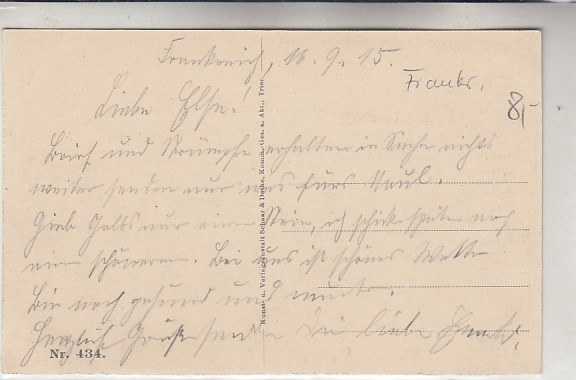 Frankreich, 16.9.15.
Frankr.
8,-
Liebe Else!
Brief und Strümpfe erhalten in Sache nichts
weiter senden nur was fürs Maul.
Gieb Jakob nur einen Stein, ich schicke später noch
ein schöneren. Bei uns ist schönes Wetter
Bin noch gesund und munter.
Herzlich Grüße sendet Dir liebe
Nr. 434.
Kunst- u. Verlagsanstalt Schaar & Dathe, Komm.-Ges. a. Akt., Trier